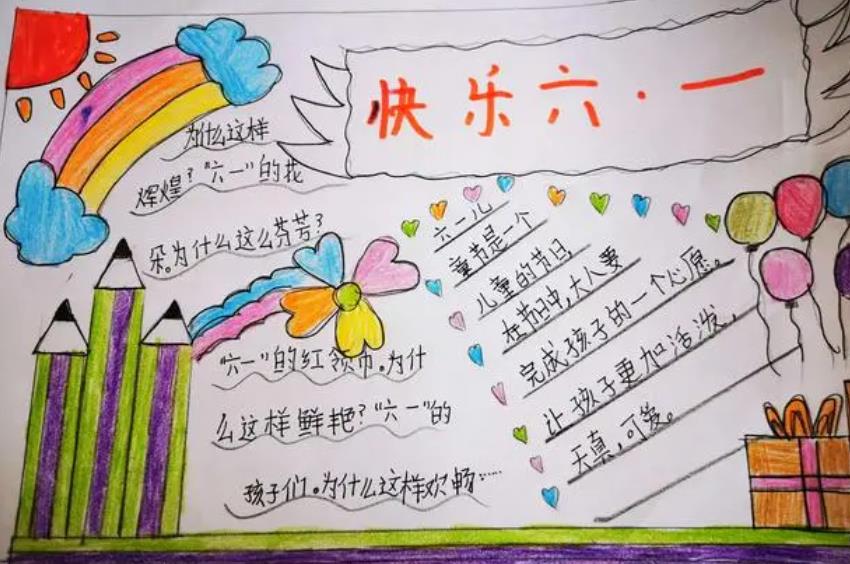 快乐六·一
为什么这样
辉煌?"六一"的花
朵。为什么这么芬芳?
"六一"的红领巾。为什
么这样鲜艳?"六一"的
孩子们。为什么这样欢畅……
六一儿
童节是一个
儿童的节日,
在节日中,大人要
完成孩子的一个心愿。
让孩子更加活泼,
天真,可爱。